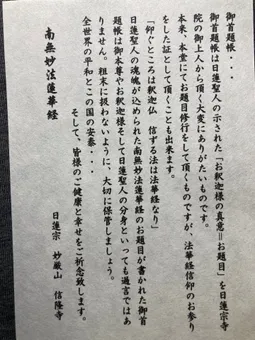 御首題帳・・・
御首題帳は日蓮聖人の示された「お釈迦様の真意＝お題目」を日蓮宗寺
院の御上人から頂く大変にありがたいものです。
本来、本堂にてお題目修行をして頂くものですが、法華経信仰のお参り
をした証として頂くことも出来ます。
「仰ぐところは釈迦仏　信ずる法は法華経なり」
日蓮聖人の御魂魄が込められた南無妙法蓮華経のお題目が書かれた御首
題帳は御本尊やお釈迦様そして日蓮聖人の分身といっても過言ではあ
りません。粗末に扱わないように、大切に保管しましょう。
全世界の平和とこの国の安泰・・・
そして、皆様のご健康と幸せをご祈念致します。
南無妙法蓮華経
日蓮宗　妙厳山　信隆寺